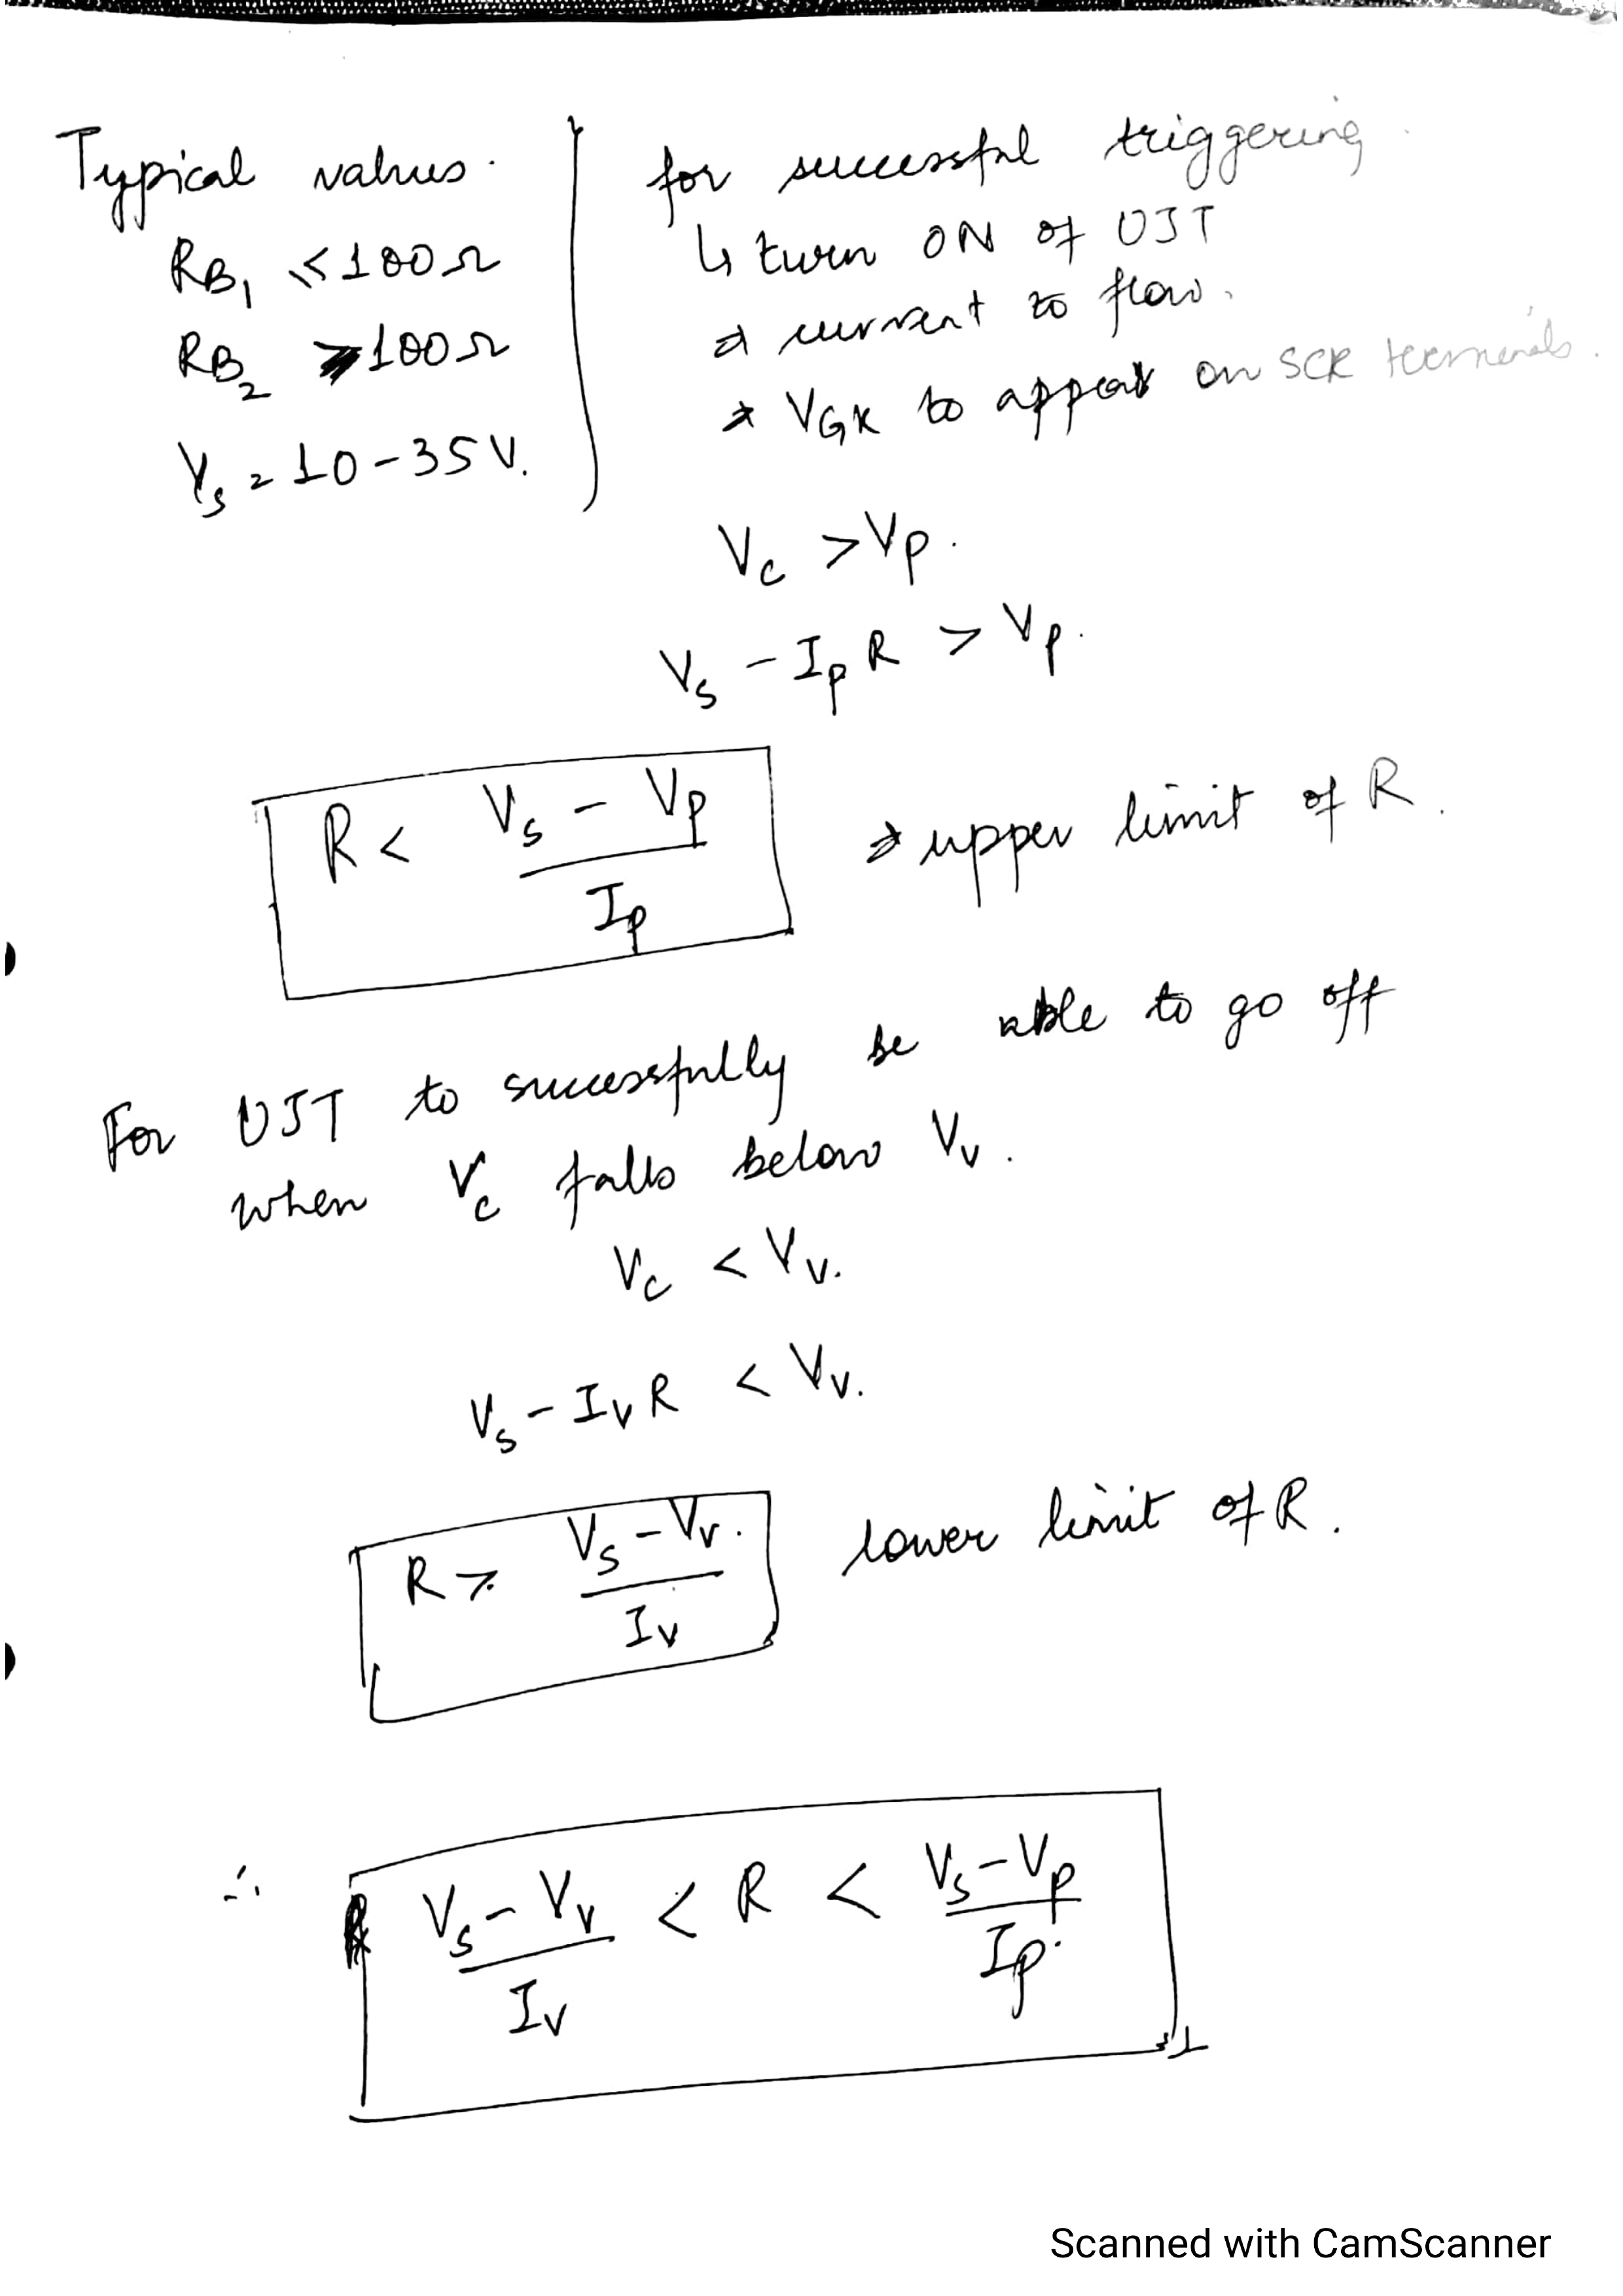 Typical values.
RB1 ≤ 100Ω
RB2 ≥ 100Ω
Vs = 10-35V.
for successful triggering
↳ turn ON of UJT
→ current to flow.
→ VGK to appear on SCR terminals.
Vc > Vp.
Vs - IpR > Vp.
R < (Vs - Vp) / Ip → upper limit of R.
For UJT to successfully be able to go off
when Vc falls below Vv.
Vc < Vv.
Vs - IvR < Vv.
R > (Vs - Vv.) / Iv lower limit of R.
∴ (Vs - Vv) / Iv < R < (Vs - Vp) / Ip.
Scanned with CamScanner